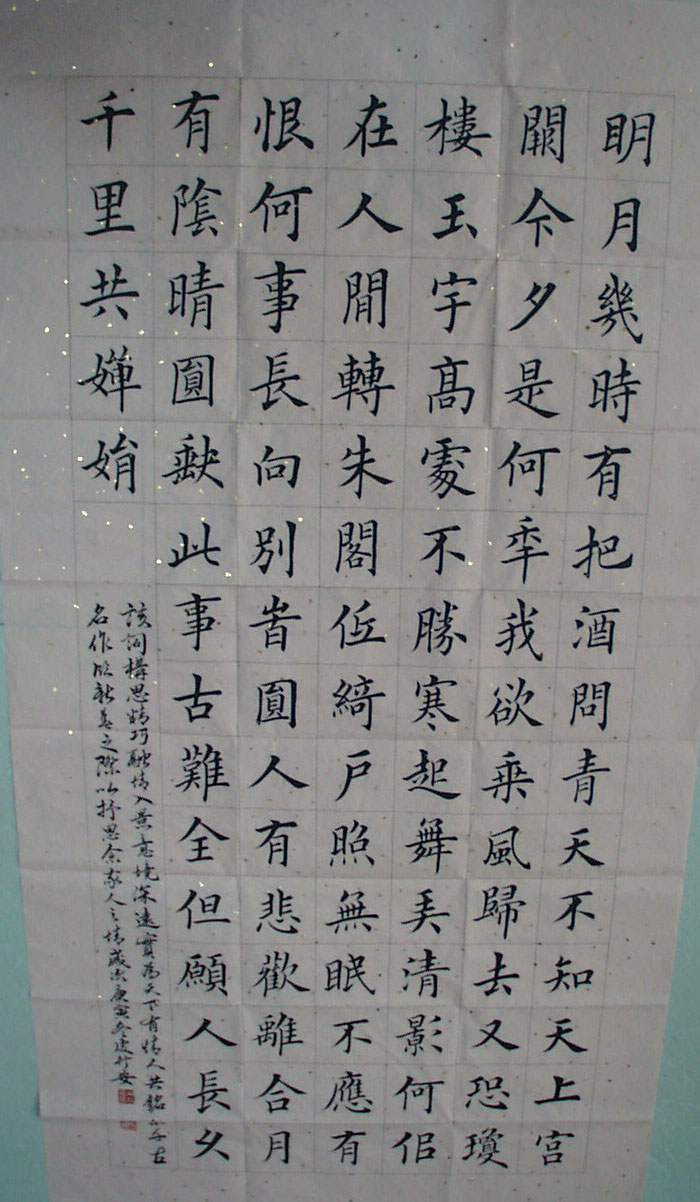 明月幾時有把酒問青天不知天上宮
闕今夕是何秊我欲乘風歸去又恐瓊
樓玉宇高處不勝寒起舞弄清影何佀
在人間轉朱閣低綺戶照無眠不應有
恨何事長向別旹圓人有悲歡離合月
有陰晴圓缺此事古難全但願人長久
千里共嬋娟
該詞構思精巧融情入景意境深遠實為天下有情人共銘古
名作新春之際以抒思念家人之情歲次庚寅冬